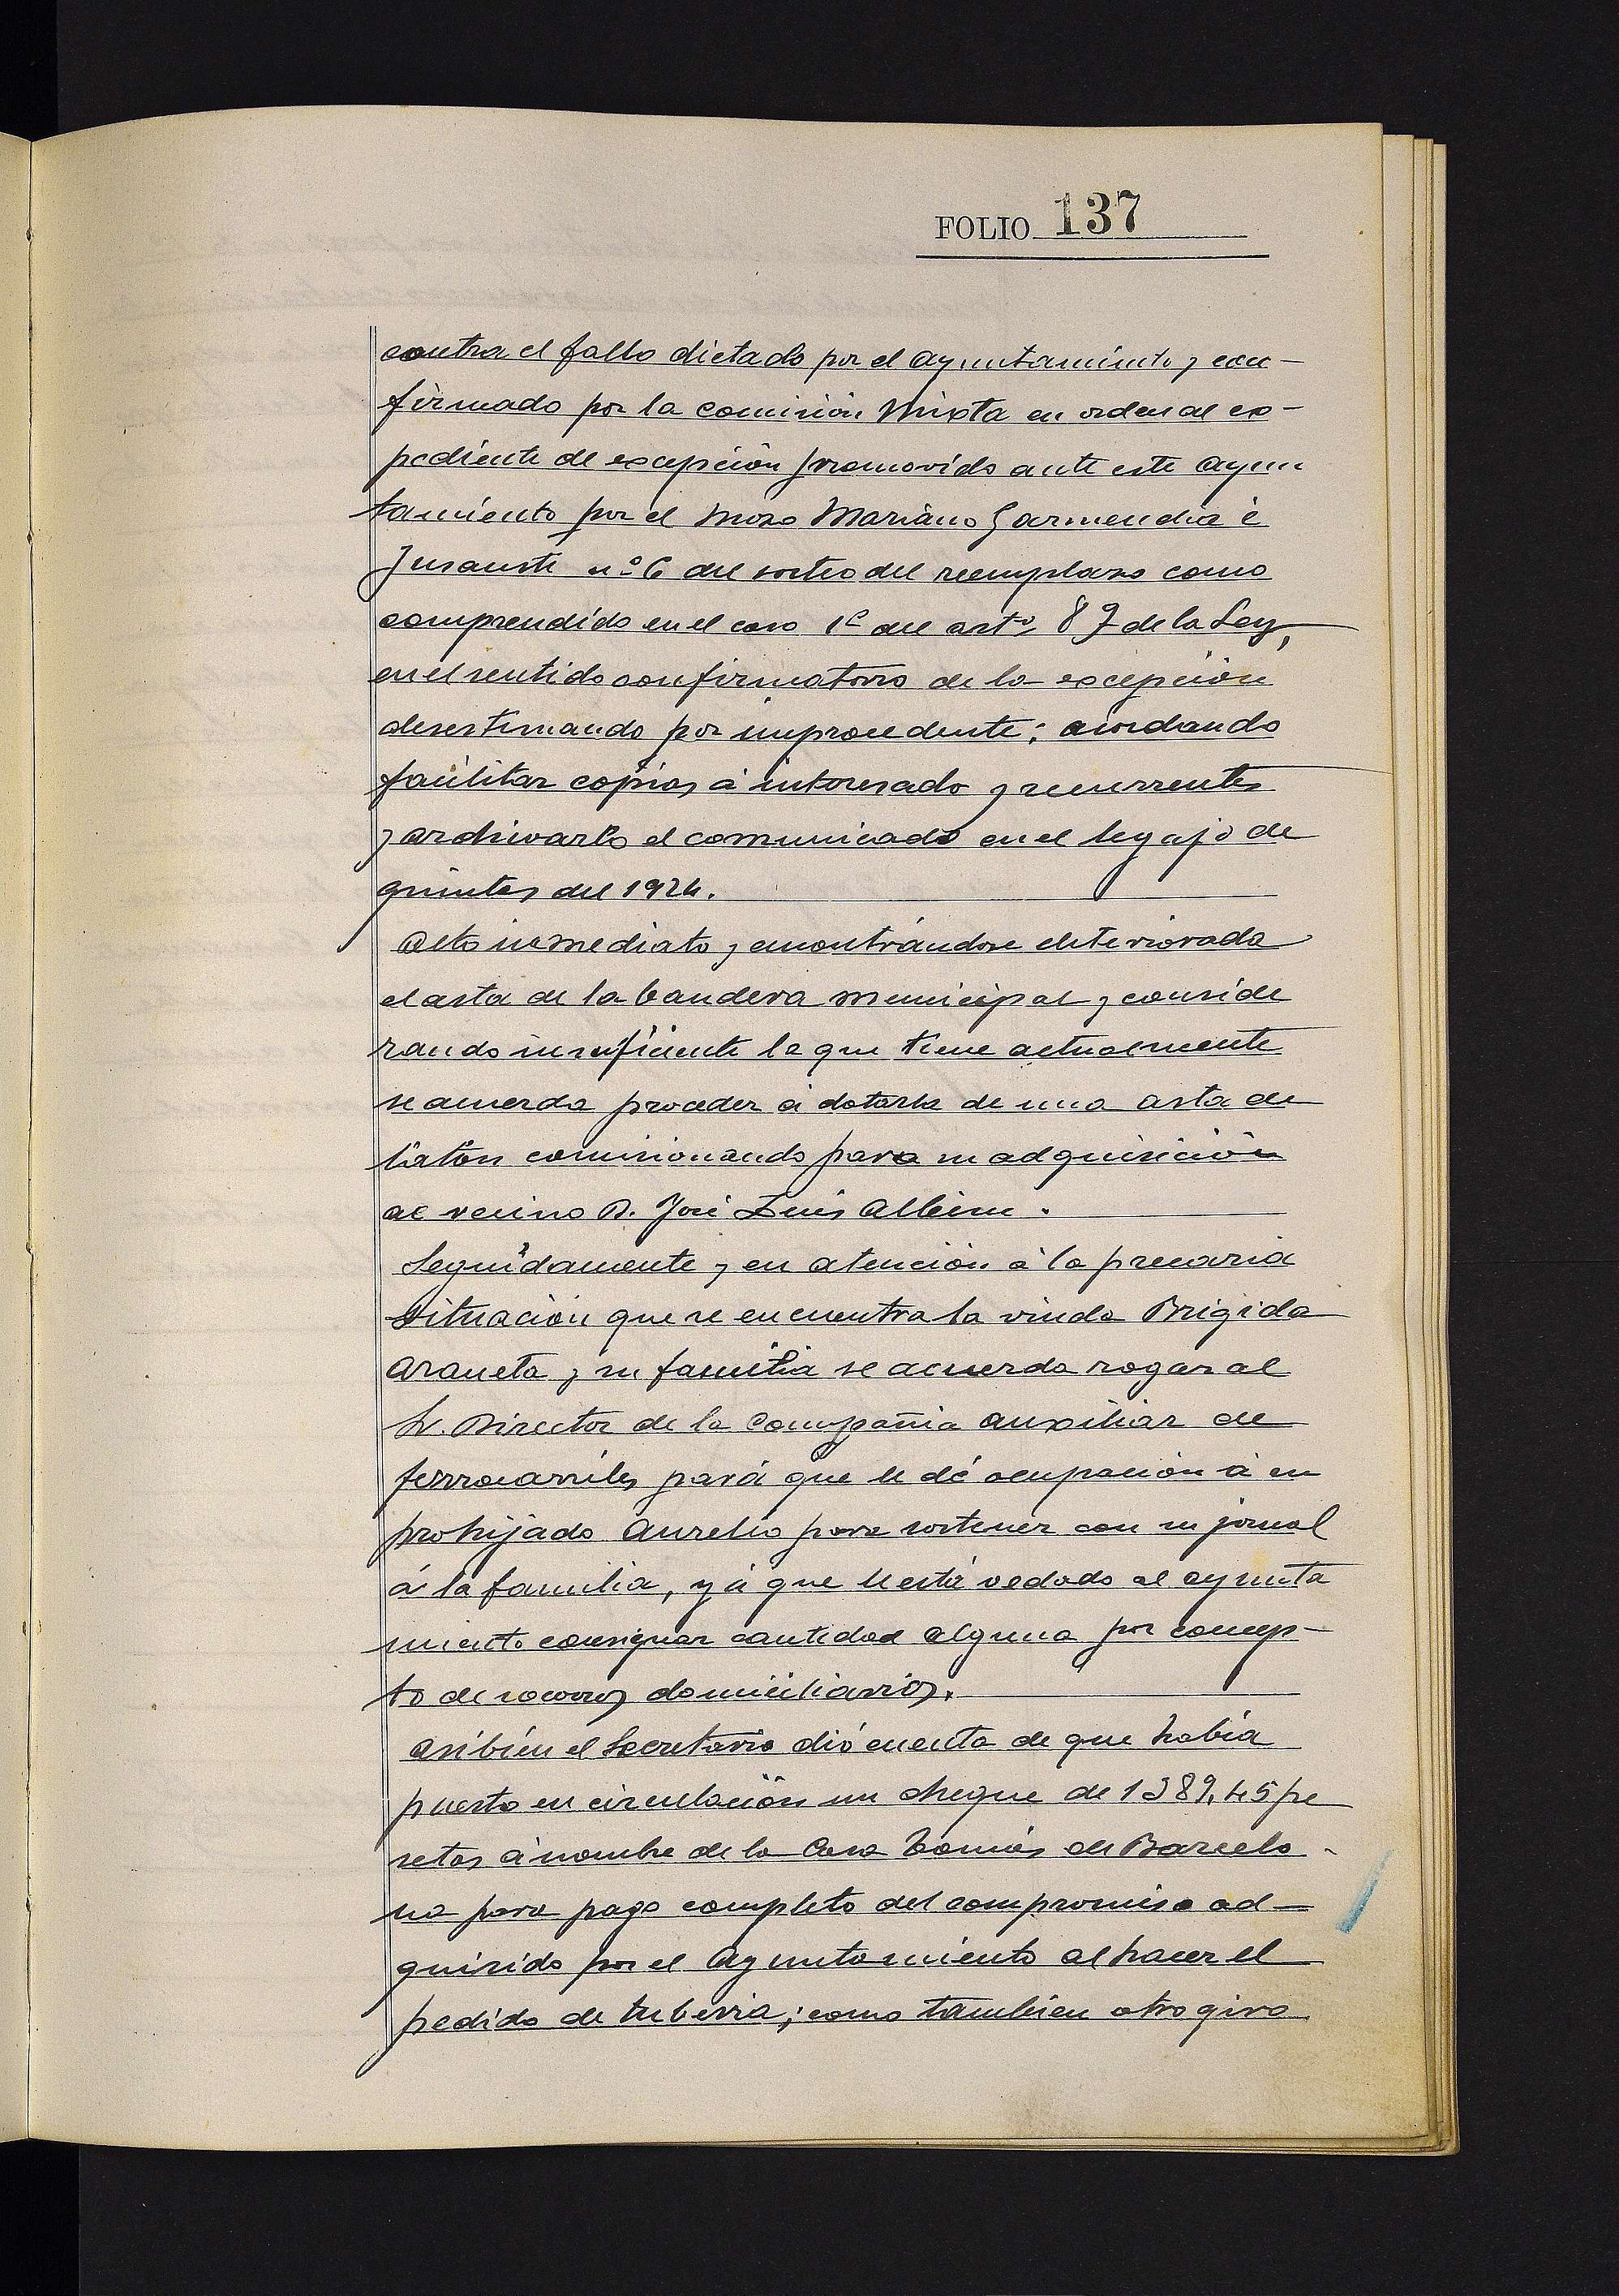 FOLIO 137
contra el fallo dictado por el Ayuntamiento y con-
firmado por la Comisión Mixta en orden al ex-
pediente de excepción promovido ante este Ayun
tamiento por el mozo Mariano Garmendia é
Insausti nº 6 del sorteo del reemplazo como
comprendido en el caso 1º del artº 89 de la Ley,
en el sentido confirmatorio de la excepción
desestimando por improcedente; acordando
facilitar copias á interesado y recurrentes
y archivarlo el comunicado en el legajo de
quintas del 1924.
Acto inmediato y encontrándose deteriorada
el asta de la bandera municipal y conside
rando insuficiente la que tiene actualmente
se acuerda proceder á dotarla de una asta de
latón comisionando para su adquisición
al vecino D. José Luis Albisu.
Seguidamente y en atención á la precaria
situación que se encuentra la viuda Brigida
Araneta y su familia se acuerda rogar al
Sr. Director de la Compañia Auxiliar de
ferrocarriles pará que le dé ocupación á su
prohijado Aurelio para sostener con su jornal
á la familia, yá que le está vedado al ayunta
miento consignar cantidad alguna por concep-
to de socorros domiciliarios.
Asibién el Secretario dió cuenta de que había
puesto en circulación un cheque de 1389,45 pe
setas á nombre de la Casa Tomás de Barcelo-
na para pago completo del compromiso ad-
quirido por el Ayuntamiento al hacer el
pedido de tuberia; como tambien otro giro